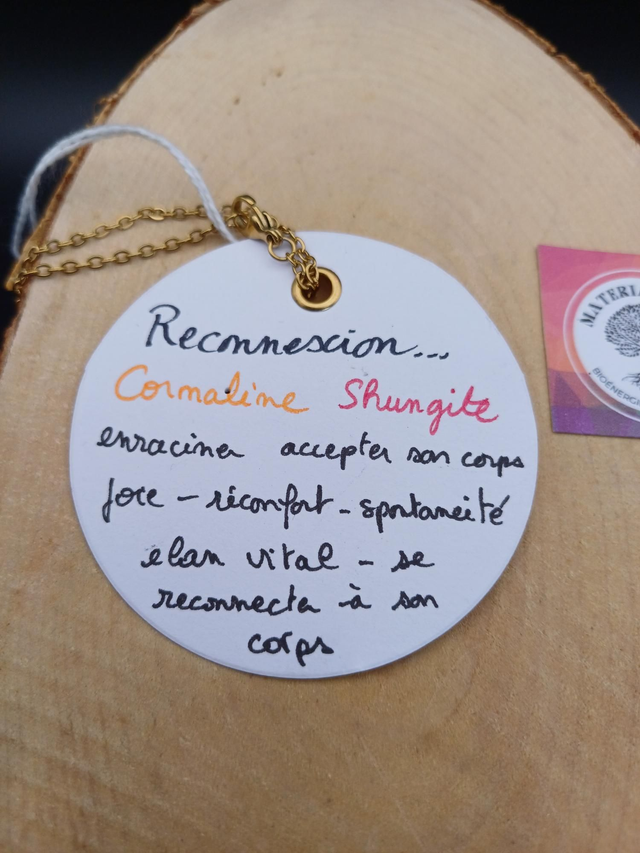 Reconnexion...
Cornaline Shungite
enraciner accepter son corps
joie - réconfort - spontaneité
elan vital - se
reconnecter à son
corps
MATERIA
BIOÉNERGI